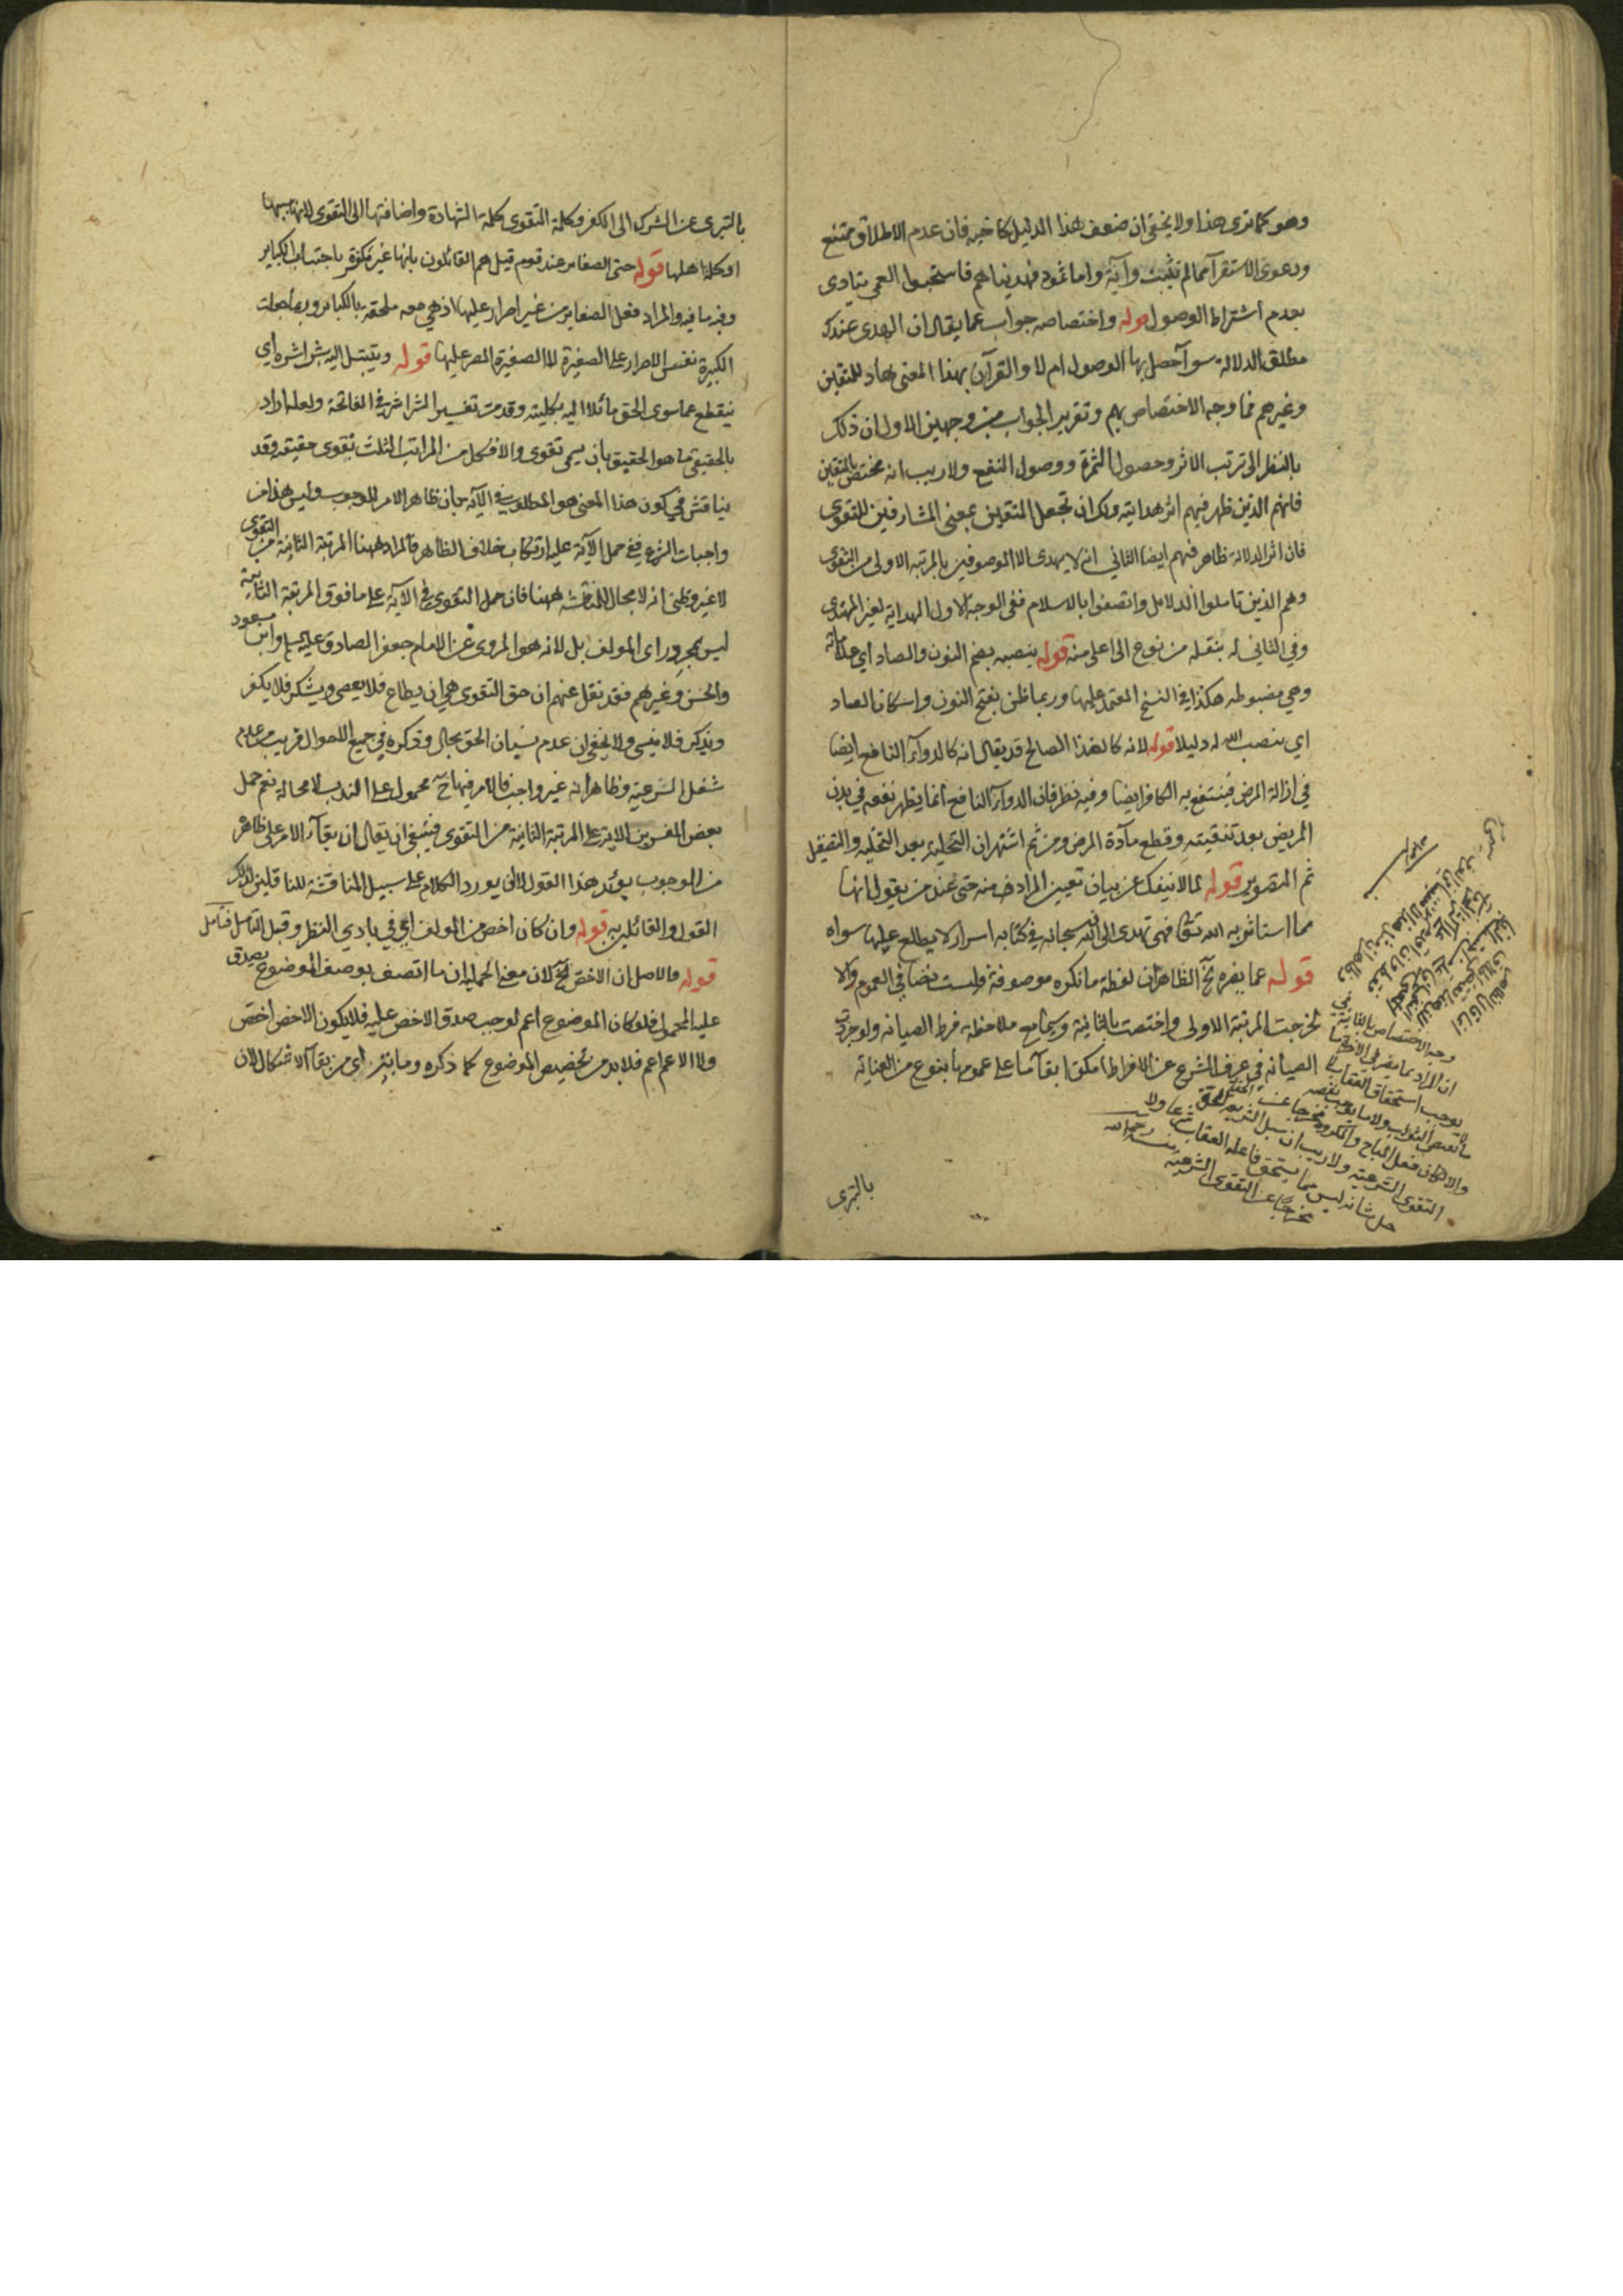 وهو كما ترى هذا ولا يخفى ان ضعف هذا الدليل كاخيه فان عدم الاطلاق ممتنع
ودعوى الاستقرآ مما لم تثبت وآية واما ثمود فهديناهم فاستحبوا العمى تنادى
بعدم اشتراط الوصول قوله واختصاصه جواب عما يقال ان الهدى عندك
مطلق الدلالة سوآ حصل بها الوصول ام لا والقرآن بهذا المعنى هاد للمتقين
وغيرهم فما وجه الاختصاص بهم وتقرير الجواب من وجهين الاول ان ذلك
بالنظر الى ترتب الاثر وحصول الثمرة ووصول النفع ولا ريب انه مختص بالمتقين
فانهم الذين ظهر فيهم اثر هدايته ولك ان تجعل المتقين بمعنى المشارفين للتقوى
فان اثر الدلالة ظاهر فيهم ايضا الثاني انه لا يهدى الا الموصوفين بالمرتبة الاولى من التقوى
وهم الذين تاملوا الدلائل واتصفوا بالاسلام ففى الوجه الاول الهداية لغير المهتدى
وفي الثاني له بنقله من نوع الى اعلى منه قوله بنصبه بضم النون والصاد اي علاماته
وهي مضبوطه هكذا في النسخ المعتمد عليها وربما ظن بفتح النون واسكان الصاد
اي بنصب الله له دليلا قوله لانه كالغذا الصالح قد يقال انه كالدوآء النافع ايضا
في ازالة المرض فينتفع به الكافر ايضا وفيه نظر فان الدوآء النافع انما يظهر نفعه في بدن
المريض بعد تنقيته وقطع مآدة المرض ومن ثم اشتهر ان التحلية بعد التخلية والتصقيل
ثم التصوير قوله لما لا ينفك عن بيان تعيين المراد منه حتى عند من يقول انها
مما استاثر به الله تعالى فهي تهدى الى ان لله سبحانه في كتابه اسرار لا يطلع عليها سواه
قوله عما يضره الخ الظاهر ان لفظة ما نكره موصوفة وليست نصا في العموم والا
لخرجت المرتبة الاولى واختصت بالثانية وسيما مع ملاحظة فرط الصيانه ولو جردت
الصيانه في عرف الشرع عن الافراط امكن ابقآ ما على عمومها بنوع من العنايه
وجه الاختصاص بالثانية
ان المراد بما يضر في الاخرة ما
يوجب استحقاق العقاب
والا لكان فعل المباح والمكروه مخرجا عن
التقوى الشرعيه ولا ريب ان
شانه ليس مما يستحق فاعله العقاب شرعا ولا
مخرجا عن التقوى الشرعيه
بالتبرى
بالتبرى عن الشرك الى الكفر وكلمة التقوى كلمة الشهادة واضافتها الى التقوى لانها سببها
او كلمة اهلها قوله حتى الصغائر عند قوم قيل هم القائلون بانها غير مكفرة باجتناب الكباير
وفيه ما فيه والمراد فعل الصغاير من غير اصرار عليها اذ هي معه ملحقه بالكباير وربما جعلت
الكبيرة نفس الاصرار على الصغيرة لا الصغيرة المصر عليها قوله ويتبتل اليه بشراشره اي
ينقطع عما سوى الحق مائلا اليه بكليته وقد مر تفسير الشراشر في الفاتحة ولعله اراد
بالحقيقى ما هو الحقيق بان يسمى تقوى والا فكل من المراتب الثلث تقوى حقيقه وقد
يناقش في كون هذا المعنى هو المطلوب في الآيه بان ظاهر الامر للوجوب وليس هذا من
واجبات الشرع ففي حمل الآية عليه ارتكاب خلاف الظاهر فالمراد ههنا المرتبة الثانية من التقوى
لا غير وظني انه لا مجال للمناقشه ههنا فان حمل التقوى في الآية على ما فوق المرتبة الثانية
ليس بمجرد راى المولف بل لانه هو المروى عن الامام جعفر الصادق عليه السلم وابن مسعود
والحسن وغيرهم فقد نقل عنهم ان حق التقوى هي ان يطاع فلا يعصى ويشكر فلا يكفر
ويذكر فلا ينسى ولا يخفى ان عدم نسيان الحق بحال وذكره في جميع الاحوال قريب من علم
شغل السر عنه وظاهر انه غير واجب فالامر فيها ح محمول على الندب لا محالة نعم حمل
بعض المفسرين الاية على المرتبة الثانية من التقوى فينبغي ان يقال ان بقآء الامر على ظاهره
من الوجوب يؤيد هذا القول لا ان يورد الكلام على سبيل المناقشة للناقلين لذلك
القول والقائلين به قوله وان كان اخص من المولف اى في بادي النظر وقبل التامل فتامل
قوله والاصل ان الاخص الخ لان معنى الحمليه ان ما اتصف بوصف الموضوع يصدق
عليه المحمول فلو كان الموضوع اعم لوجب صدق الاخص عليه فلا يكون الاخص اخص
ولا الاعم اعم فلا بد من تخصيص الموضوع كما ذكره وما يتر اى من بقآء الاشكال لان